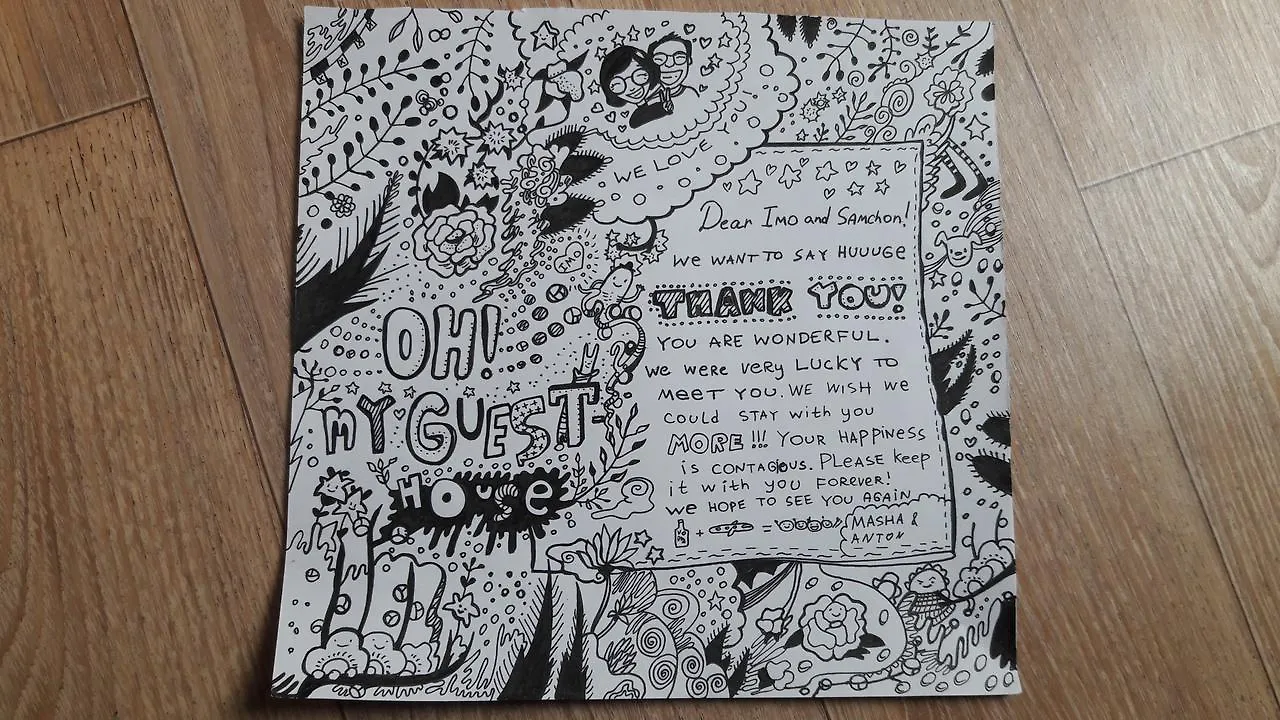 WE LOVE
Dear Imo and Samchon!
WE WANT TO SAY HUUUGE
THANK YOU!
YOU ARE WONDERFUL.
We were very LUCKY TO
MEET YOU. WE WISH WE
COULD STAY with you
MORE!!! YOUR HAPPINESS
is CONTAGIOUS. PLEASE keep
it with you FOREVER!
we HOPE TO SEE YOU AGAIN
+ =
MASHA &
ANTON
IMO
OH!
MY GUEST-
House